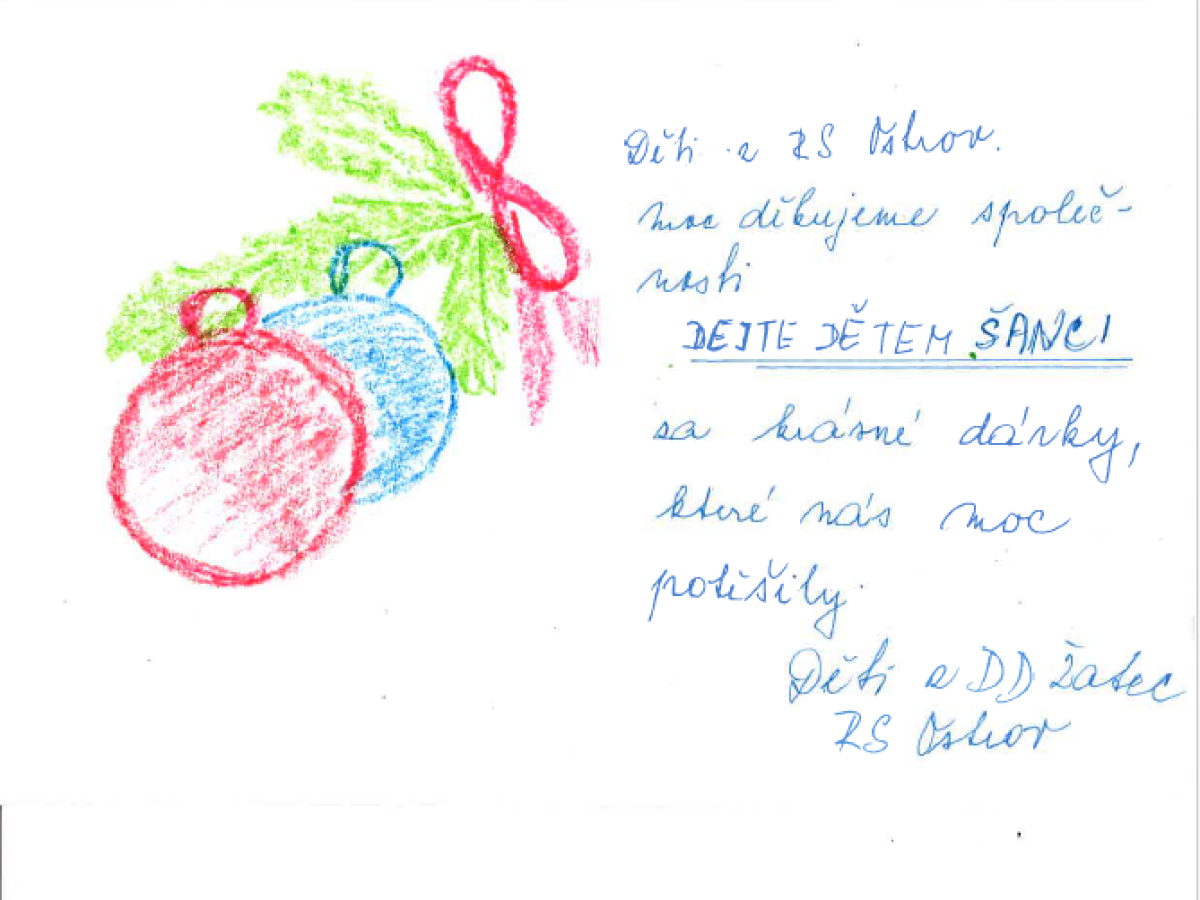 Děti z RS Ostrov.
moc děkujeme společ-
nosti
DEJTE DĚTEM ŠANCI
za krásné dárky,
které nás moc
potěšily.
Děti z DD Žatec
RS Ostrov